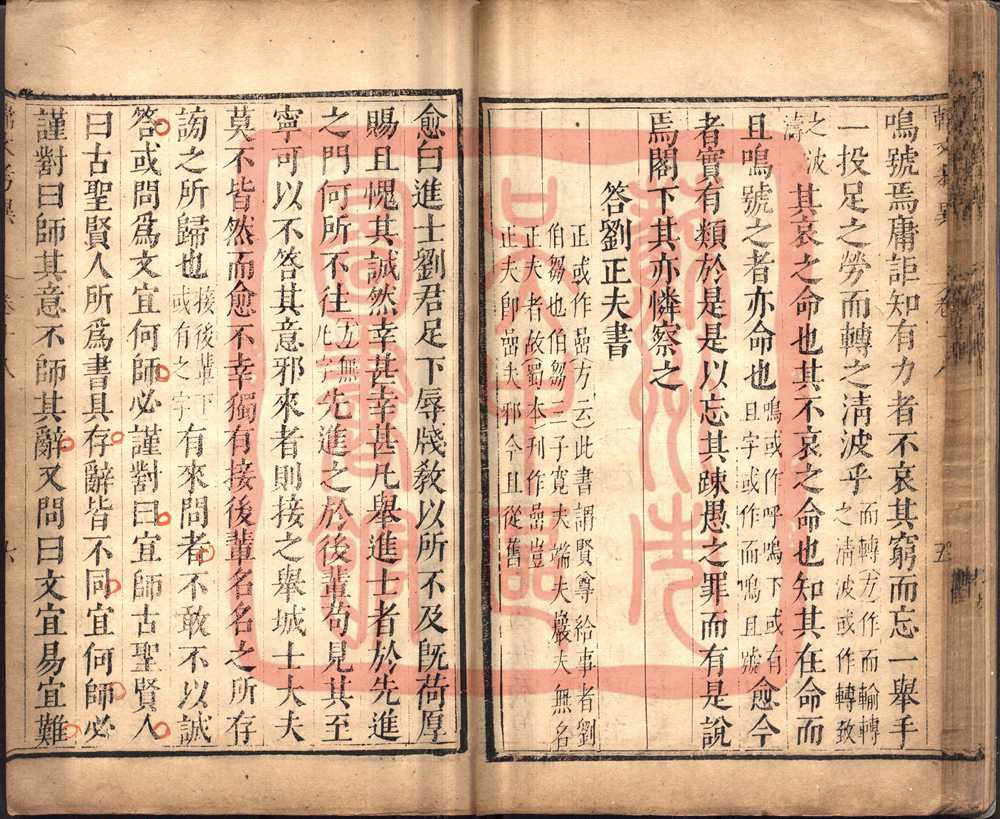 鳴號焉庸詎知有力者不哀其窮而忘一舉手
一投足之勞而轉之清波乎而轉方作而輸轉之清波或作轉致
之波濤其哀之命也其不哀之命也知其在命而
且鳴號之者亦命也鳴或作呼鳴下或有且字或作而鳴且號愈今
者實有類於是是以忘其疎愚之罪而有是說
焉閣下其亦憐察之
答劉正夫書
正或作嵒方云此書謂賢尊給事者劉
伯芻也伯芻三子寬夫端夫巖夫無名
正夫者故蜀本刊作嵒豈
正夫即嵒夫邪今且從舊
愈白進士劉君足下辱牋敎以所不及旣荷厚
賜且愧其誠然幸甚幸甚凡舉進士者於先進
之門何所不往五無凡字先進之於後輩苟見其至
寧可以不答其意邪來者則接之舉城士大夫
莫不皆然而愈不幸獨有接後輩名名之所存
謗之所歸也接後輩下或有之字有來問者不敢不以誠
答或問爲文宜何師必謹對曰宜師古聖賢人
曰古聖賢人所爲書具存辭皆不同宜何師必
謹對曰師其意不師其辭又問曰文宜易宜難